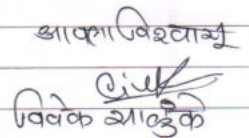 आपला विश्वासू
विवेक साळुंके